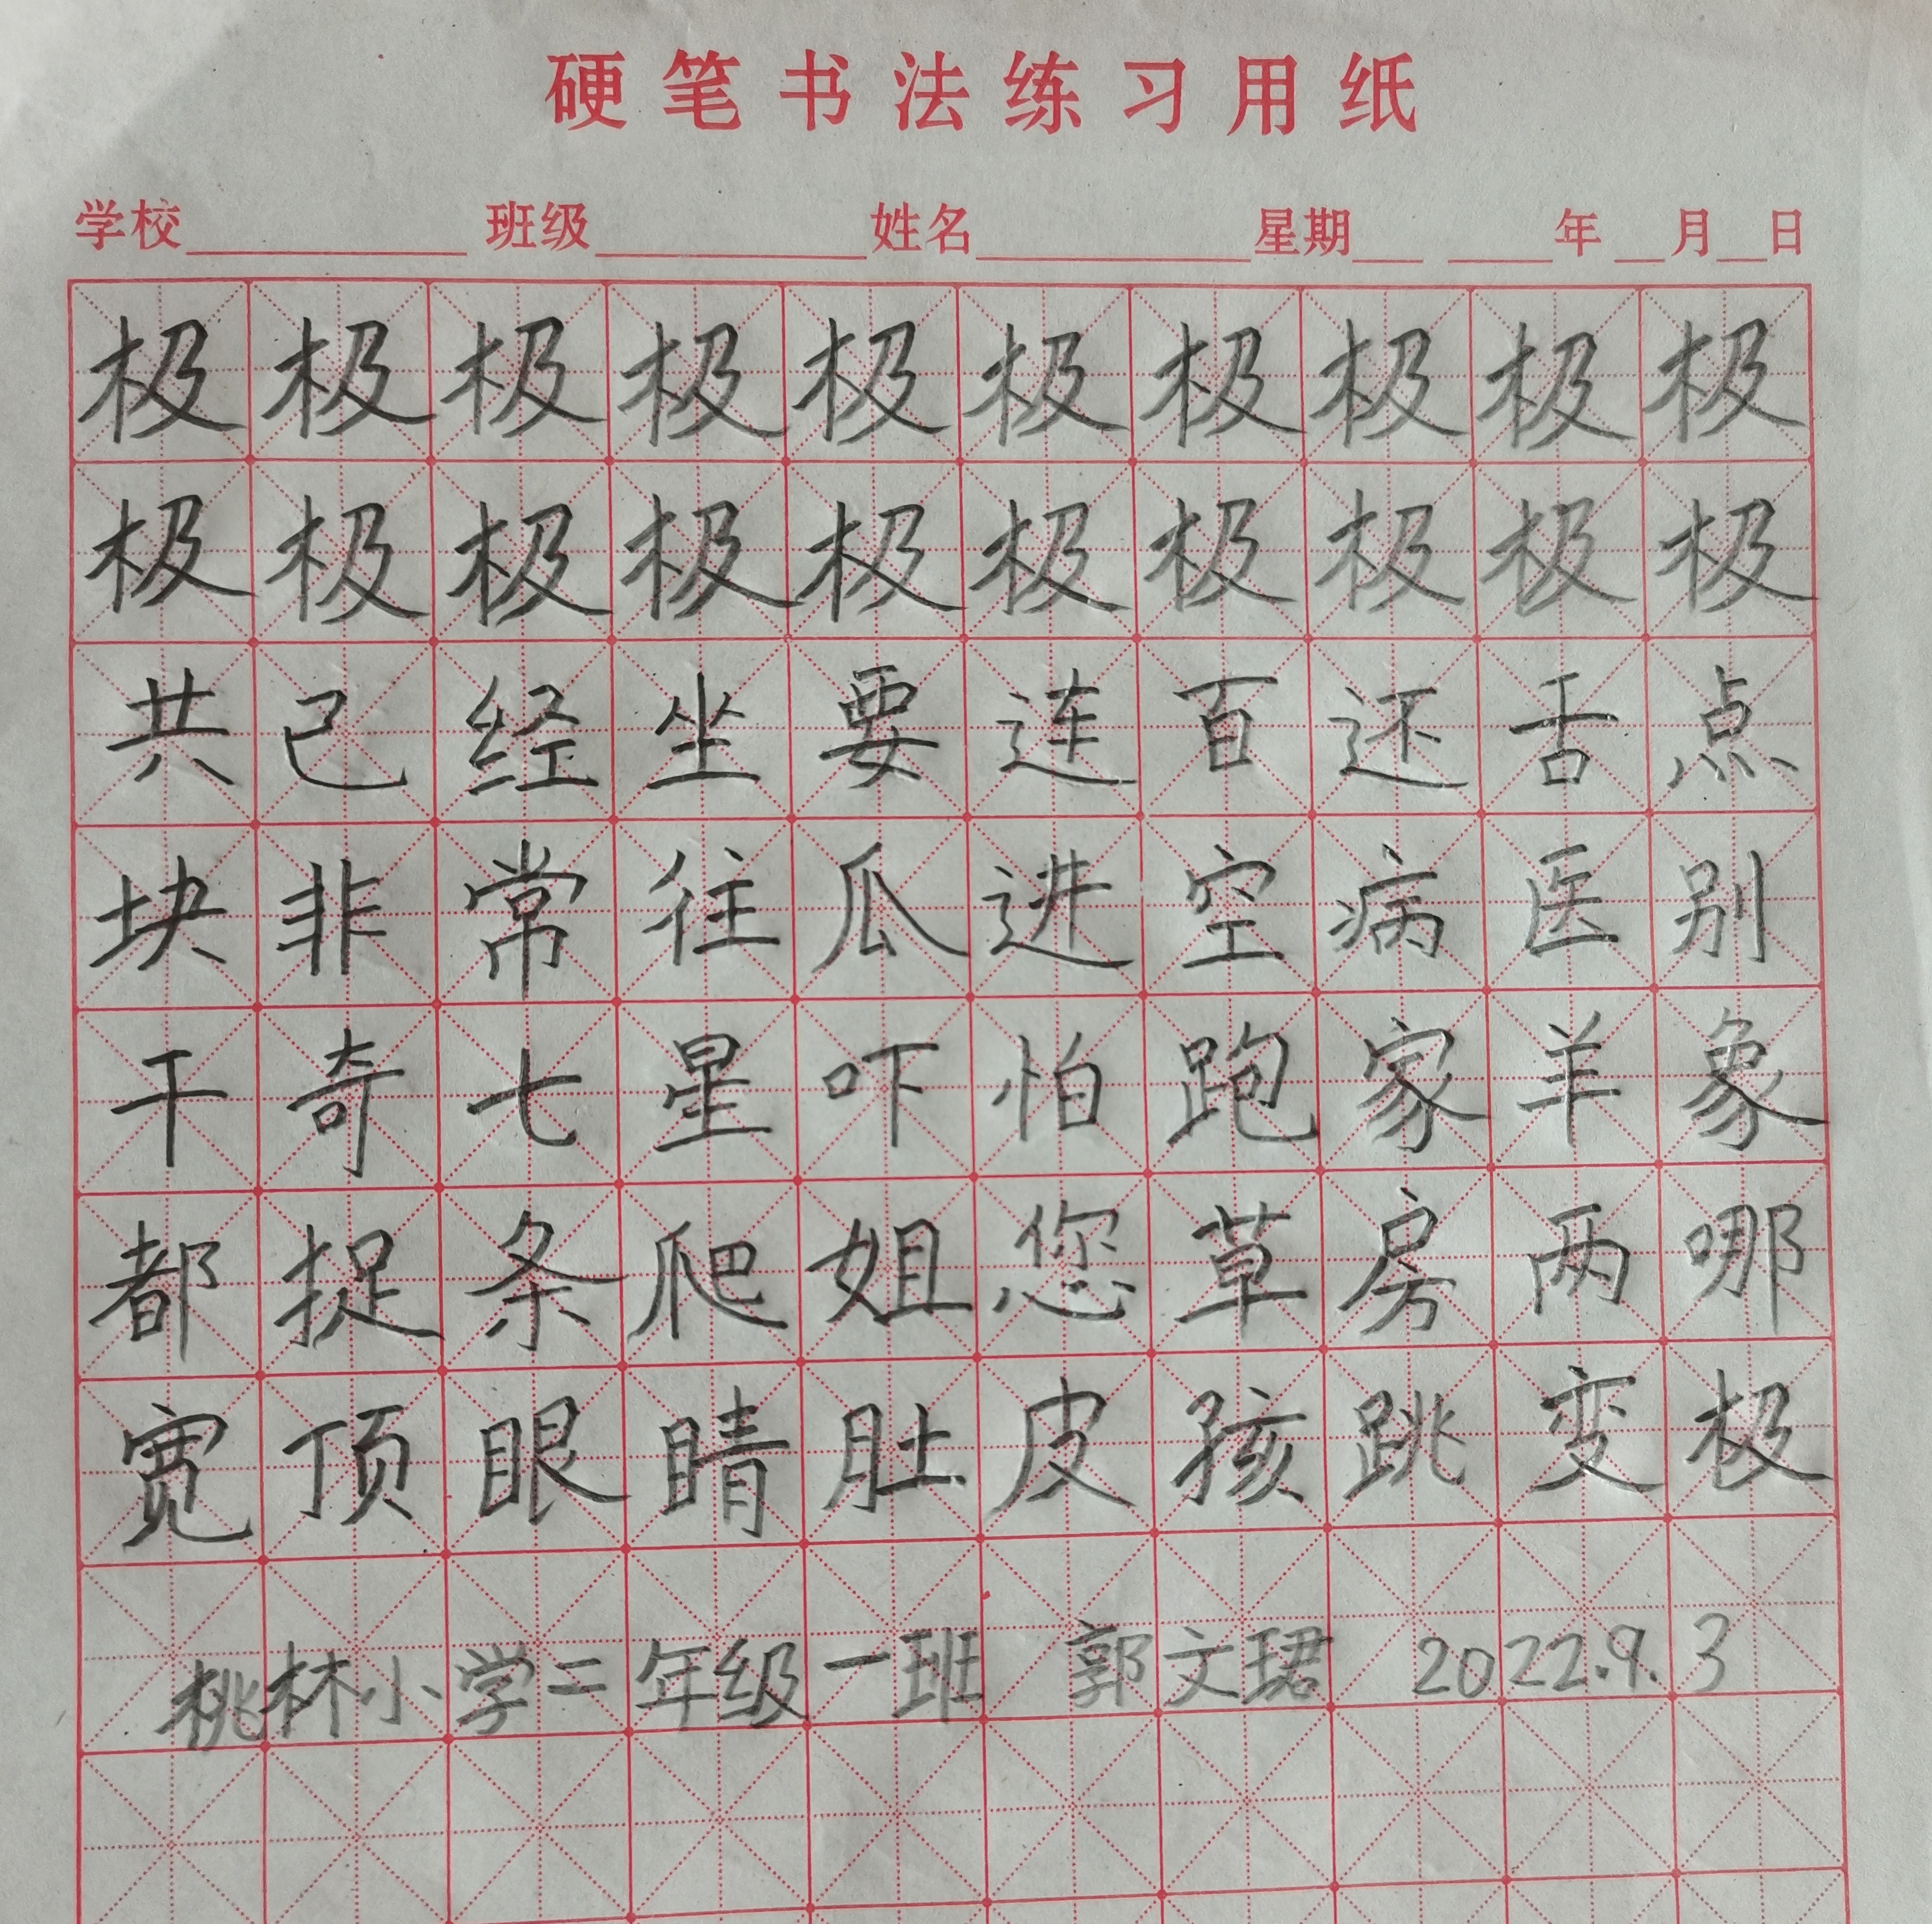 硬笔书法练习用纸
学校 班级 姓名 星期 年 月 日
极极极极极极极极极极
极极极极极极极极极极
共己经坐要连百还舌点
块非常往瓜进空病医别
干奇七星吓怕跑家羊象
都捉条爬姐您草房两哪
宽顶眼睛肚皮孩跳变极
桃林小学二年级一班 郭文珺 2022.9.3